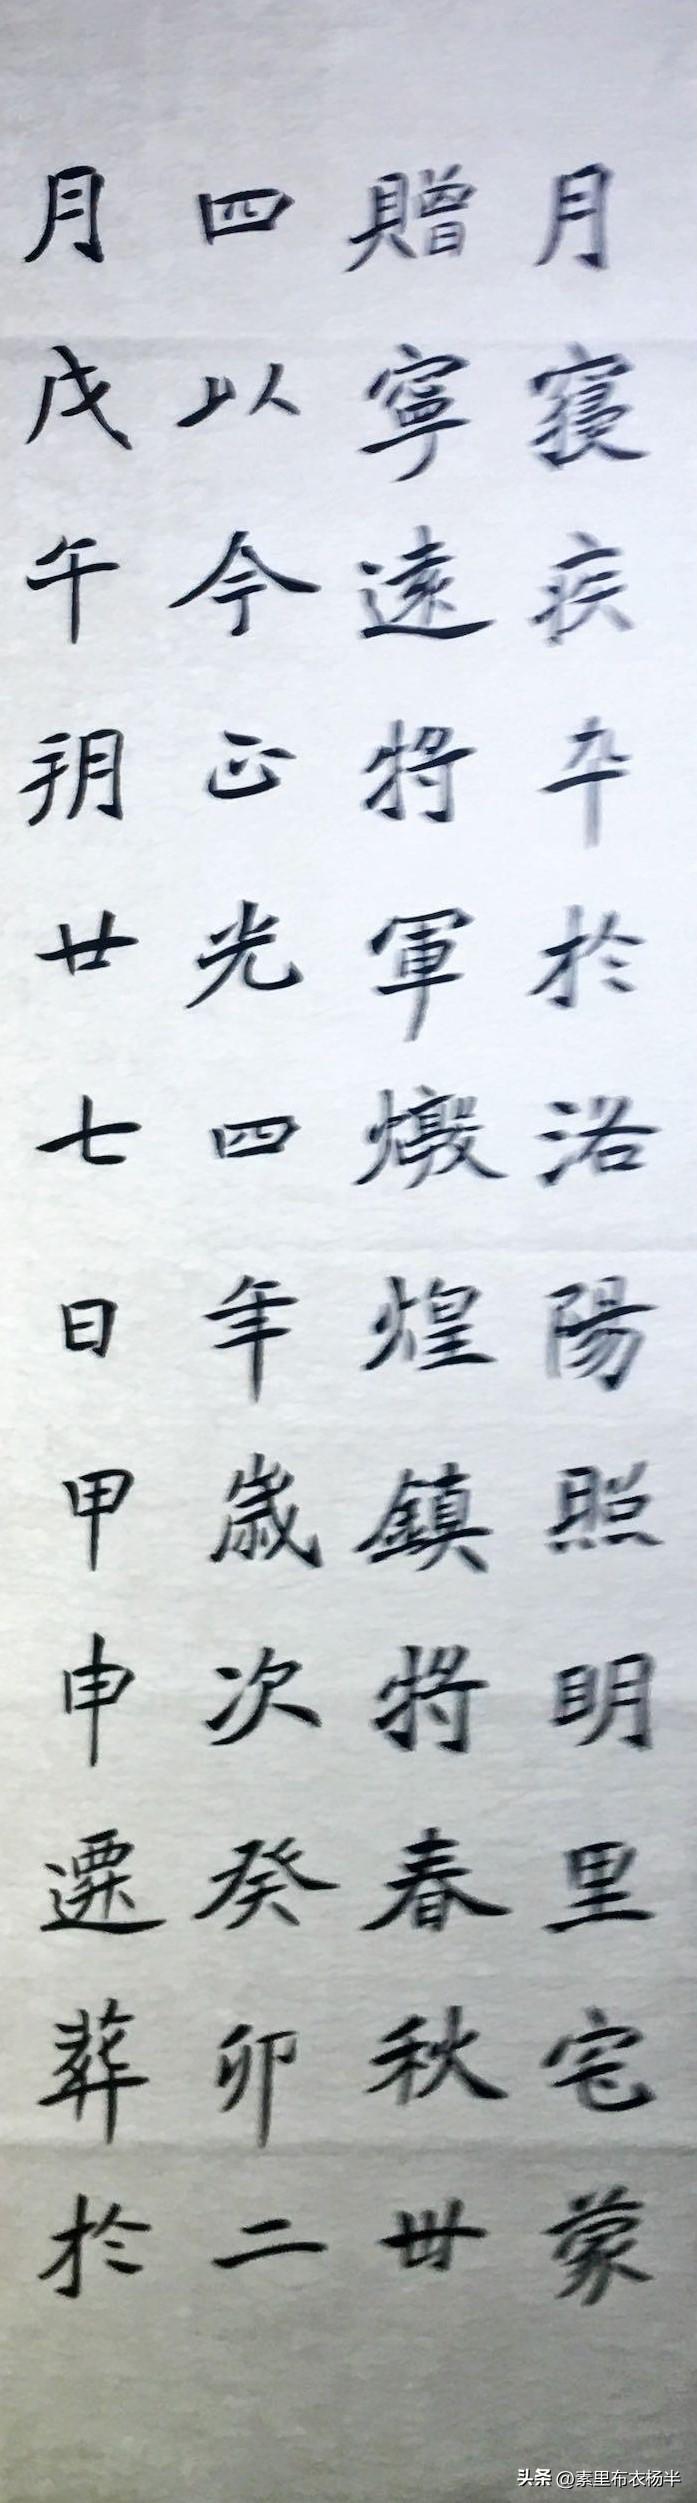 月寝疾卒於洛陽照明里宅蒙
贈寧遠將軍燉煌鎮將春秋卌
四以今正光四年歲次癸卯二
月戊午朔廿七日甲申遷葬於
头条 @素里布衣杨半